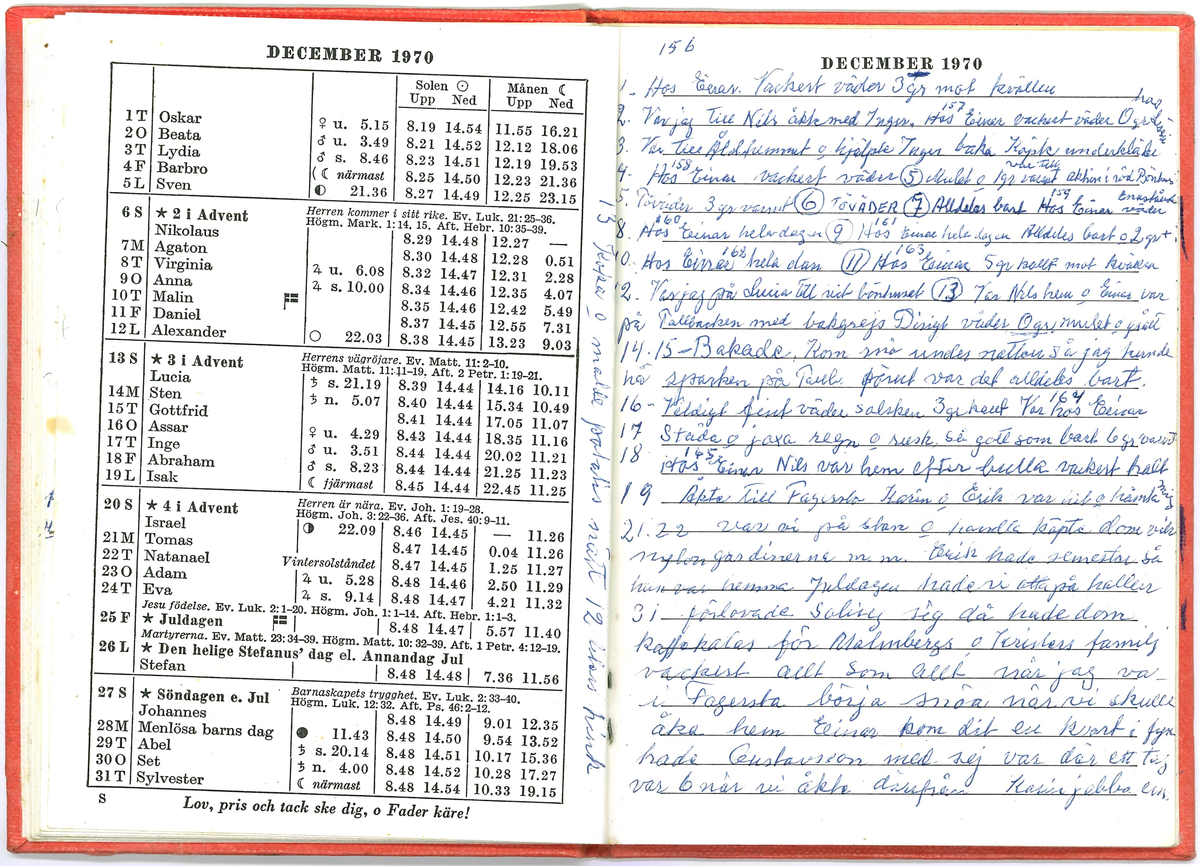 DECEMBER 1970
Solen ☉ Månen ☾
Upp Ned Upp Ned
1 T Oskar ♀ u. 5.15 8.19 14.54 11.55 16.21
2 O Beata ♂ u. 3.49 8.21 14.52 12.12 18.06
3 T Lydia ♂ s. 8.46 8.23 14.51 12.19 19.53
4 F Barbro (☾ närmast 8.25 14.50 12.23 21.36
5 L Sven ◐ 21.36 8.27 14.49 12.25 23.15
6 S ★ 2 i Advent Herren kommer i sitt rike. Ev. Luk. 21: 25-36.
Högm. Mark. 1: 14, 15. Aft. Hebr. 10: 35-39.
Nikolaus 8.29 14.48 12.27 —
7 M Agaton 8.30 14.48 12.28 0.51
8 T Virginia ♃ u. 6.08 8.32 14.47 12.31 2.28
9 O Anna ♃ s. 10.00 8.34 14.46 12.35 4.07
10 T Malin 8.35 14.46 12.42 5.49
11 F Daniel 8.37 14.45 12.55 7.31
12 L Alexander ○ 22.03 8.38 14.45 13.23 9.03
13 S ★ 3 i Advent Herrens vägröjare. Ev. Matt. 11: 2-10.
Högm. Matt. 11: 11-19. Aft. 2 Petr. 1: 19-21.
Lucia ♄ s. 21.19 8.39 14.44 14.16 10.11
14 M Sten ♄ n. 5.07 8.40 14.44 15.34 10.49
15 T Gottfrid 8.41 14.44 17.05 11.07
16 O Assar ♀ u. 4.29 8.43 14.44 18.35 11.16
17 T Inge ♂ u. 3.51 8.44 14.44 20.02 11.21
18 F Abraham ♂ s. 8.23 8.44 14.44 21.25 11.23
19 L Isak ☾ fjärmast 8.45 14.44 22.45 11.25
20 S ★ 4 i Advent Herren är nära. Ev. Joh. 1: 19-28.
Högm. Joh. 3: 22-36. Aft. Jes. 40: 9-11.
Israel ◑ 22.09 8.46 14.45 — 11.26
21 M Tomas 8.47 14.45 0.04 11.26
22 T Natanael Vintersolståndet 8.47 14.45 1.25 11.27
23 O Adam ♃ u. 5.28 8.48 14.46 2.50 11.29
24 T Eva ♃ s. 9.14 8.48 14.47 4.21 11.32
Jesu födelse. Ev. Luk. 2: 1-20. Högm. Joh. 1: 1-14. Aft. Hebr. 1: 1-3.
25 F ★ Juldagen 8.48 14.47 5.57 11.40
Martyrerna. Ev. Matt. 23: 34-39. Högm. Matt. 10: 32-39. Aft. 1 Petr. 4: 12-19.
26 L ★ Den helige Stefanus' dag el. Annandag Jul
Stefan 8.48 14.48 7.36 11.56
27 S ★ Söndagen e. Jul Barnaskapets trygghet. Ev. Luk. 2: 33-40.
Högm. Luk. 12: 32. Aft. Ps. 46: 2-12.
Johannes 8.48 14.49 9.01 12.35
28 M Menlösa barns dag ● 11.43 8.48 14.50 9.54 13.52
29 T Abel ♄ s. 20.14 8.48 14.51 10.17 15.36
30 O Set ♄ n. 4.00 8.48 14.52 10.28 17.27
31 T Sylvester ☾ närmast 8.48 14.54 10.33 19.15
S Lov, pris och tack ske dig, o Fader käre!
13 o malde potatis 12
156
DECEMBER 1970
1. Hos Einar. Vackert väder 3 gr mot kvällen
2. Var jag till Nils åkte med Inger. 157 Hos Einar vackert väder 0 gr
3. Var till o hjälpte Inger baka Köpte underkläder
4. 158 Hos Einar vackert väder (5) Mulet o 1 gr varmt var till auktion i röd
5. Töväder 3 gr varmt (6) TÖVÄDER (7) Alldeles bart 159 Hos Einar väder
8. 160 Hos Einar hela dagen (9) 161 Hos Einar hela dagen Alldeles bart o 2 gr +
10. Hos Einar 162 hela dan (11) 163 Hos Einar 5 gr kallt mot kvällen
12. Var jag på Lucia till bönhuset (13) Var Nils hem o Einar var
på Tallbacken med väder 0 gr, mulet o grått
14. 15 - Bakade. Kom snö under natten så jag kunde
på var det alldeles bart.
16 - Väldigt fint väder solsken 3 gr Var 164 hos Einar
17 Städa o regn o rusk så gott som bart 6 gr varmt
18 165 Hos Einar Nils var hem efter bulla vackert kallt
19 Åkte till Fagersta Karin o Erik var hit o hämta mig
21. 22 var vi på stan o handla köpte dom
nylongardinerna m.m. Erik hade semester så
han var hemma Juldagen hade vi
31 förlovade Solveig sig då hade dom
kaffekalas för Malmbergs o Kristers familj
vackert allt som allt när jag va
i Fagersta börja snöa när vi skulle
åka hem Einar kom dit en kvart i fyra
hade Gustavsson med sej var där ett tag
var 6 när vi åkte därifrån Karin